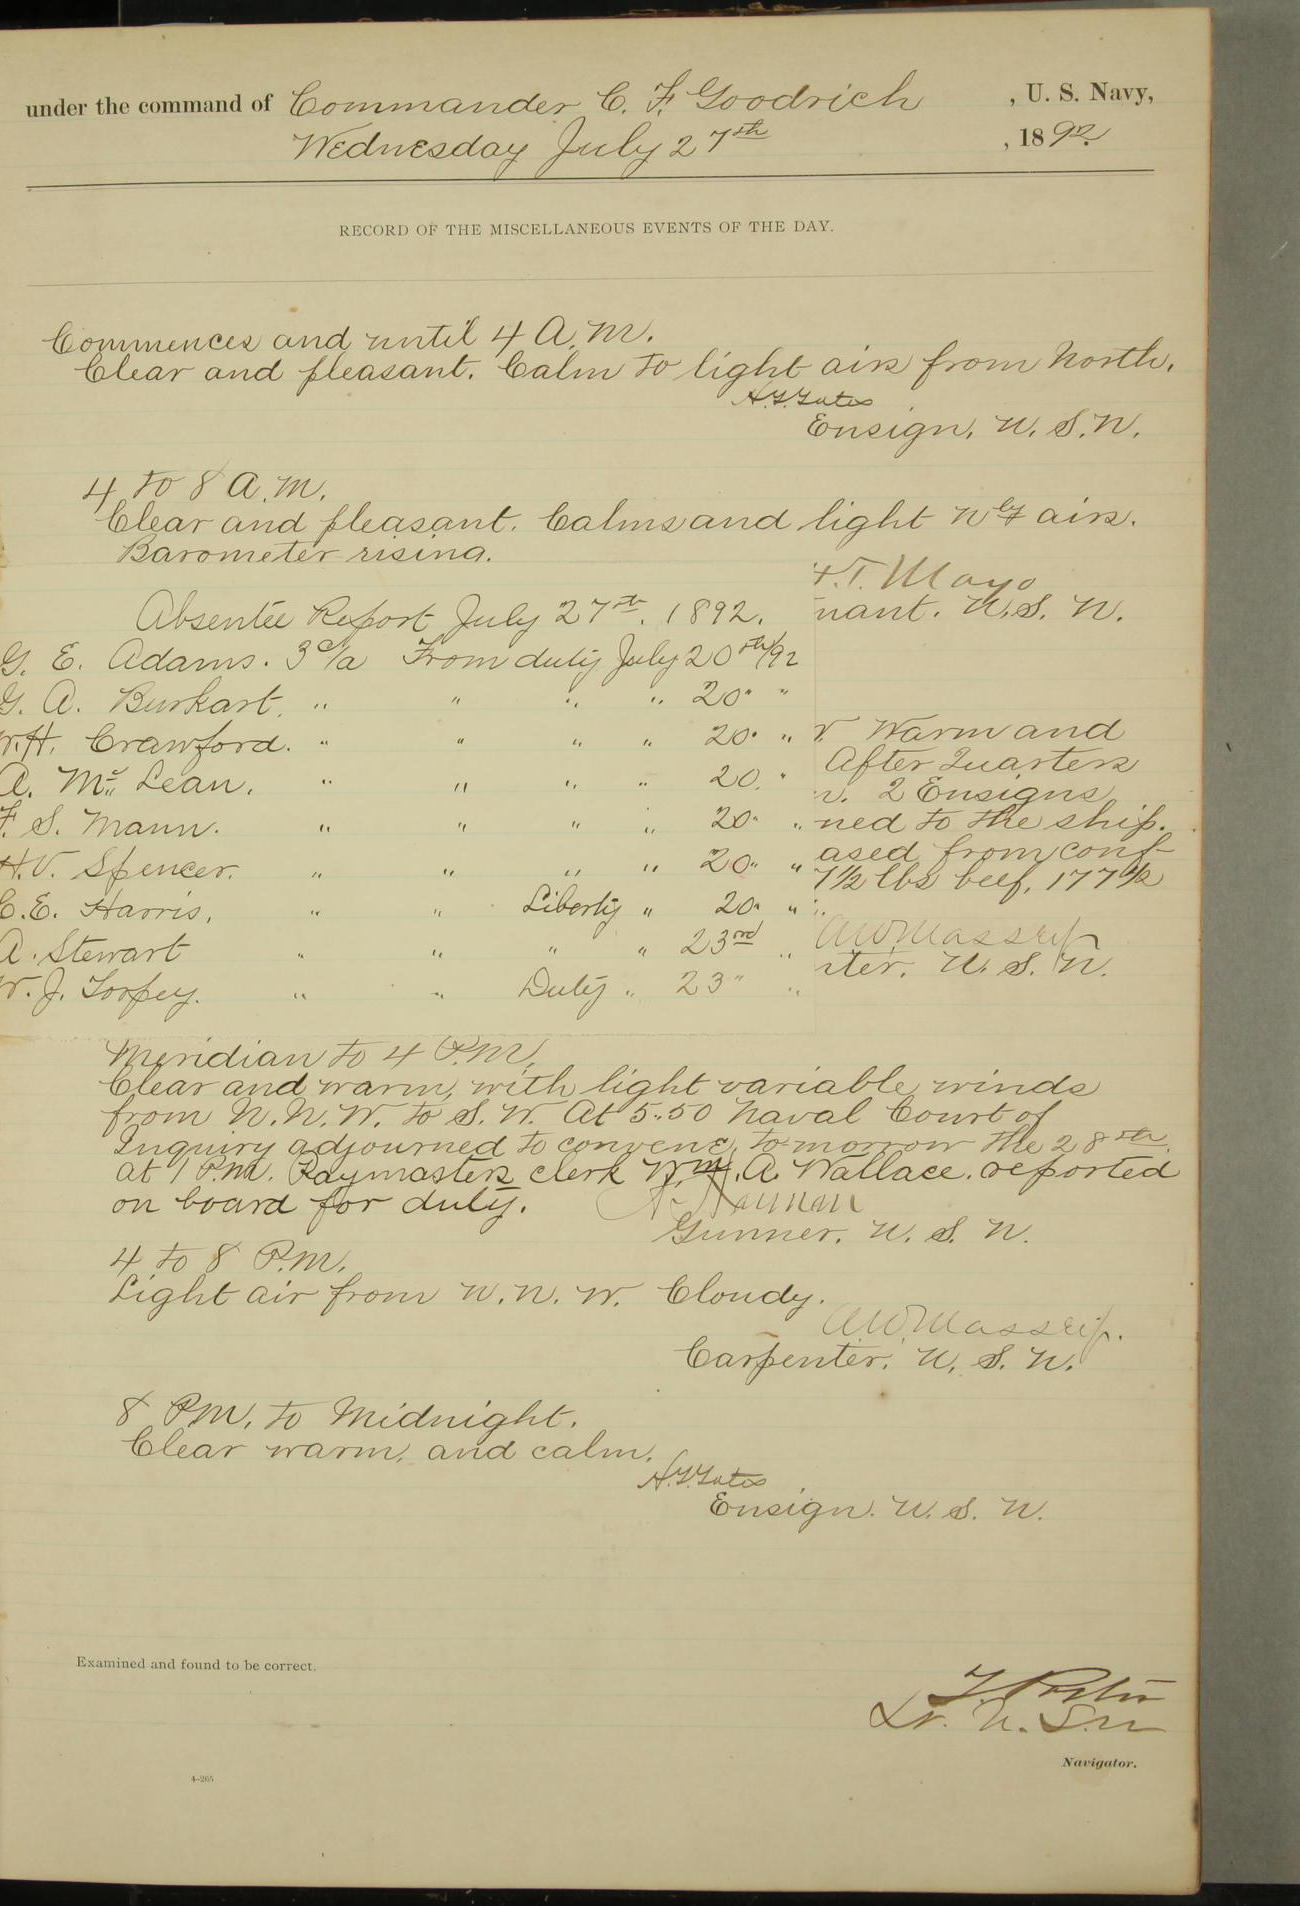 under the command of Commander C. F. Goodrich , U. S. Navy,
Wednesday July 27th , 1892.
RECORD OF THE MISCELLANEOUS EVENTS OF THE DAY.
Commences and until 4 A.M.
Clear and pleasant. Calm to light airs from North.
Ensign. U. S. N.
4 to 8 A.M.
Clear and pleasant. Calms and light Nly airs.
Barometer rising.
H.T. Mayo
nant. U.S. N.
Absentee Report July 27th. 1892.
G. E. Adams. 3 c/a From duty July 20th/92
G. A. Burkart. " " " " 20 " "
W.H. Crawford. " " " " 20 " "
A. Mc Lean. " " " " 20 "
F. S. Mann. " " " " 20 " "
H.V. Spencer. " " " " 20 " "
C.E. Harris. " " Liberty " 20 " "
A. Stewart " " " " 23rd "
W. J. Toopey. " " Duty " 23 " "
Warm and
After Quarters
2 Ensigns
ned to the ship.
ased from conf
7 1/2 lbs beef, 177 1/2
nter. U. S. N.
Meridian to 4 P.M.
Clear and warm, with light variable winds
from N.N.W. to S.W. At 5.50 Naval Court of
Inquiry adjourned to convene, to-morrow the 28th
at 1 P.M. Paymasters clerk Wm. A. Wallace. reported
on board for duty.
Gunner. U. S. N.
4 to 8 P.M.
Light air from W.N.W. Cloudy.
Carpenter. U. S. N.
8 P.M. to Midnight.
Clear warm, and calm.
Ensign. U. S. N.
Examined and found to be correct.
Lt. U. S. N
Navigator.
4-265